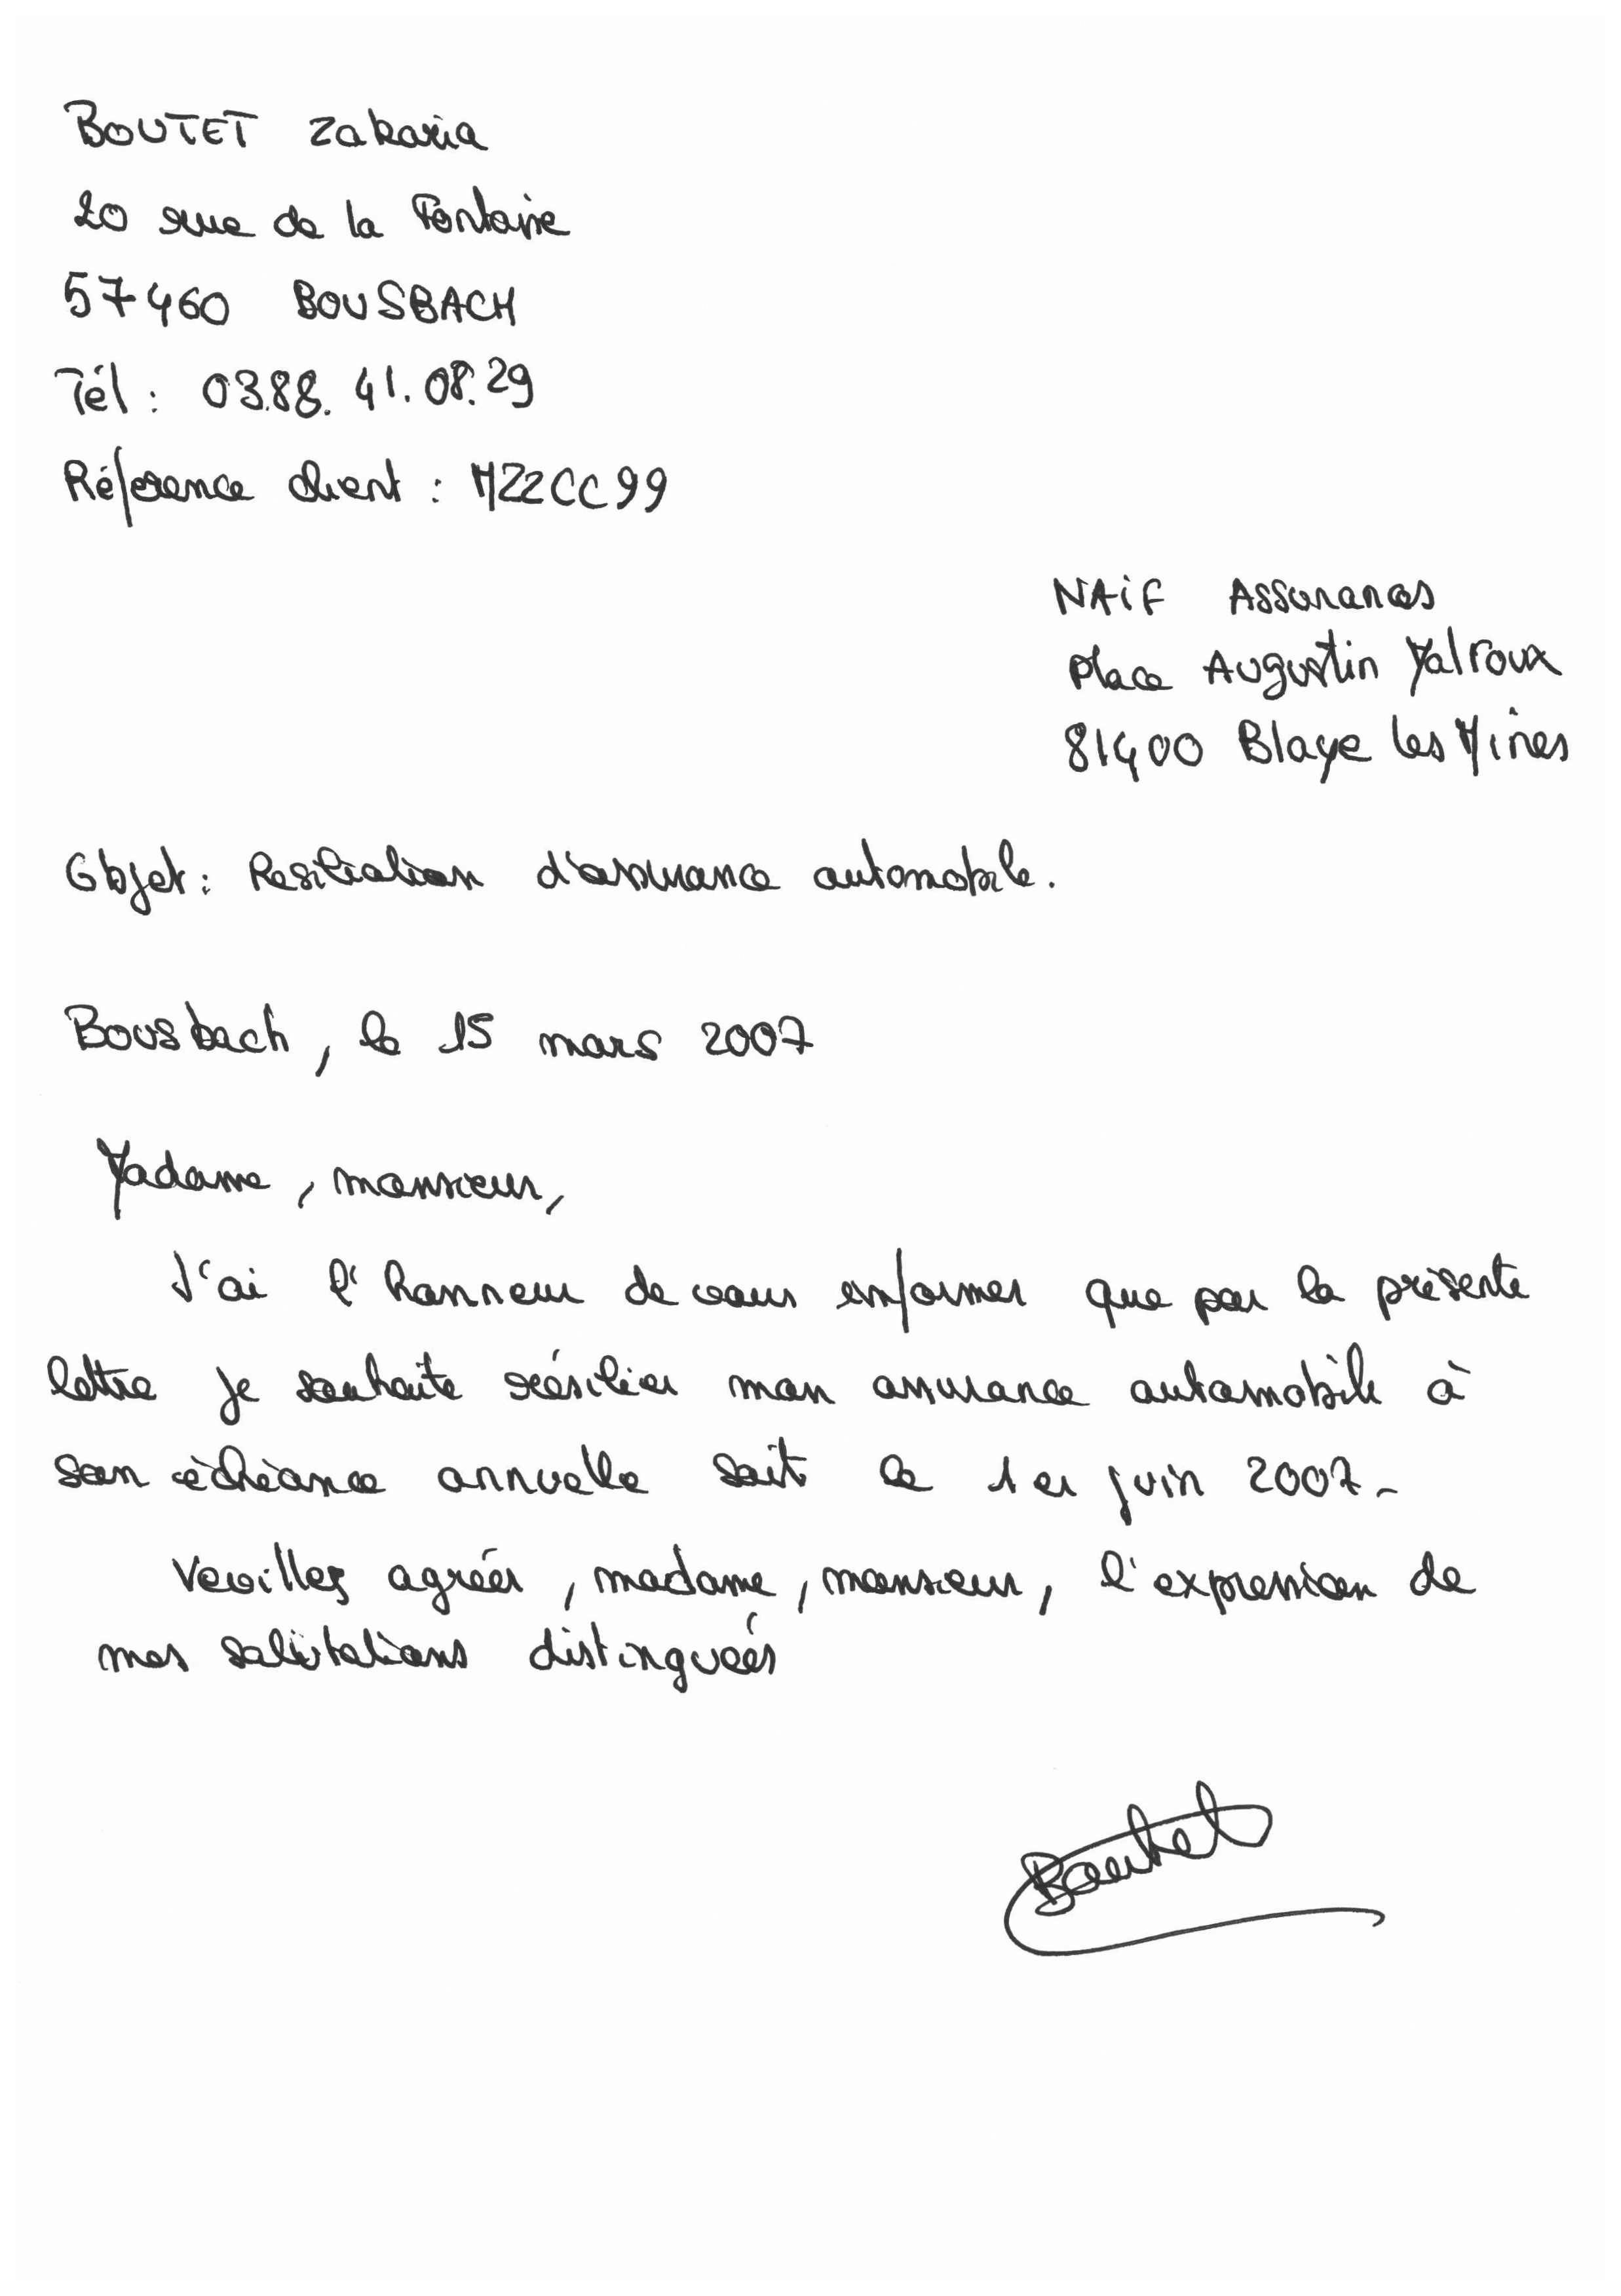 BOUTET Zakaria
20 rue de la Fontaine
57460 BOUSBACH
Tél : 03.88.41.08.29
Réference client : MZ2CC99
NAiF Assurances
Place Augustin Malroux
81400 Blaye les Mines
Objet : Resiliation d'assurance automobile.
Bousbach, le 15 mars 2007
Madame, monsieur,
J'ai l'honneur de vous informer que par la présente
lettre je souhaite résilier mon assurance automobile à
son échéance annuelle soit le 1er juin 2007.
Veuillez agréer, madame, monsieur, l'expression de
mes salutations distinguées
Boutet